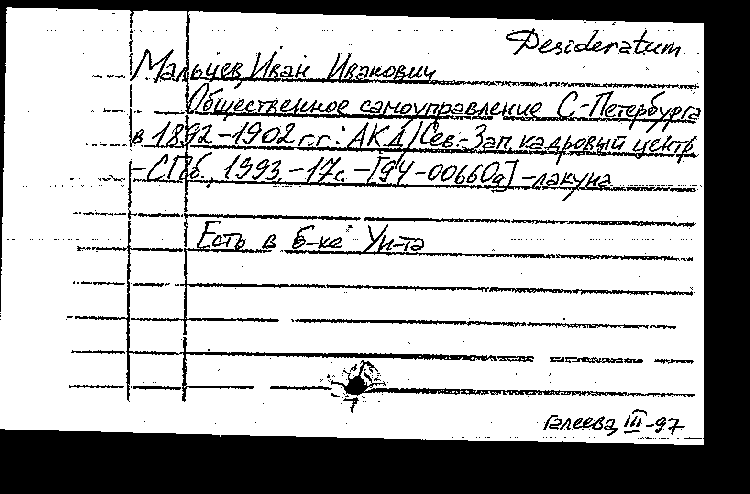 Desideratum
Мальцев, Иван Иванович
Общественное самоуправление С-Петербурга
в 1892-1902 г.г.: АКД / Сев.-Зап. кадровый центр
-СПб., 1993.-17с.-[94-00660а] -лакуна
Есть в б-ке Ун-та
Галеева, III-97